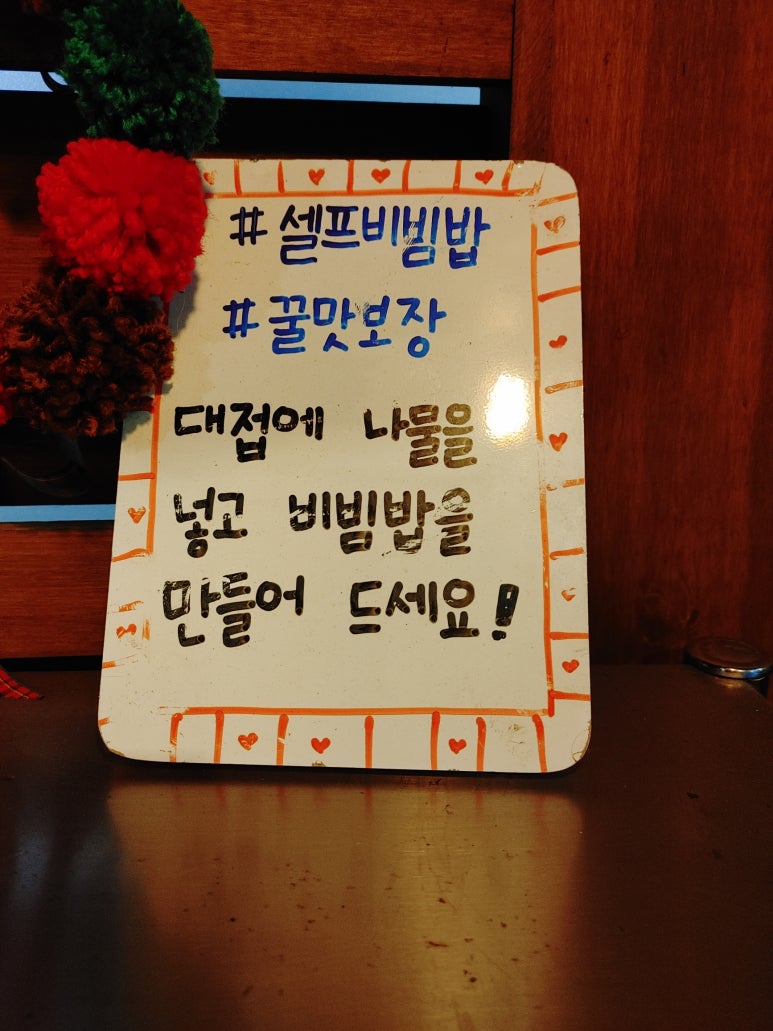 #셀프비빔밥
#꿀맛보장
대접에 나물을
넣고 비빔밥을
만들어 드세요!